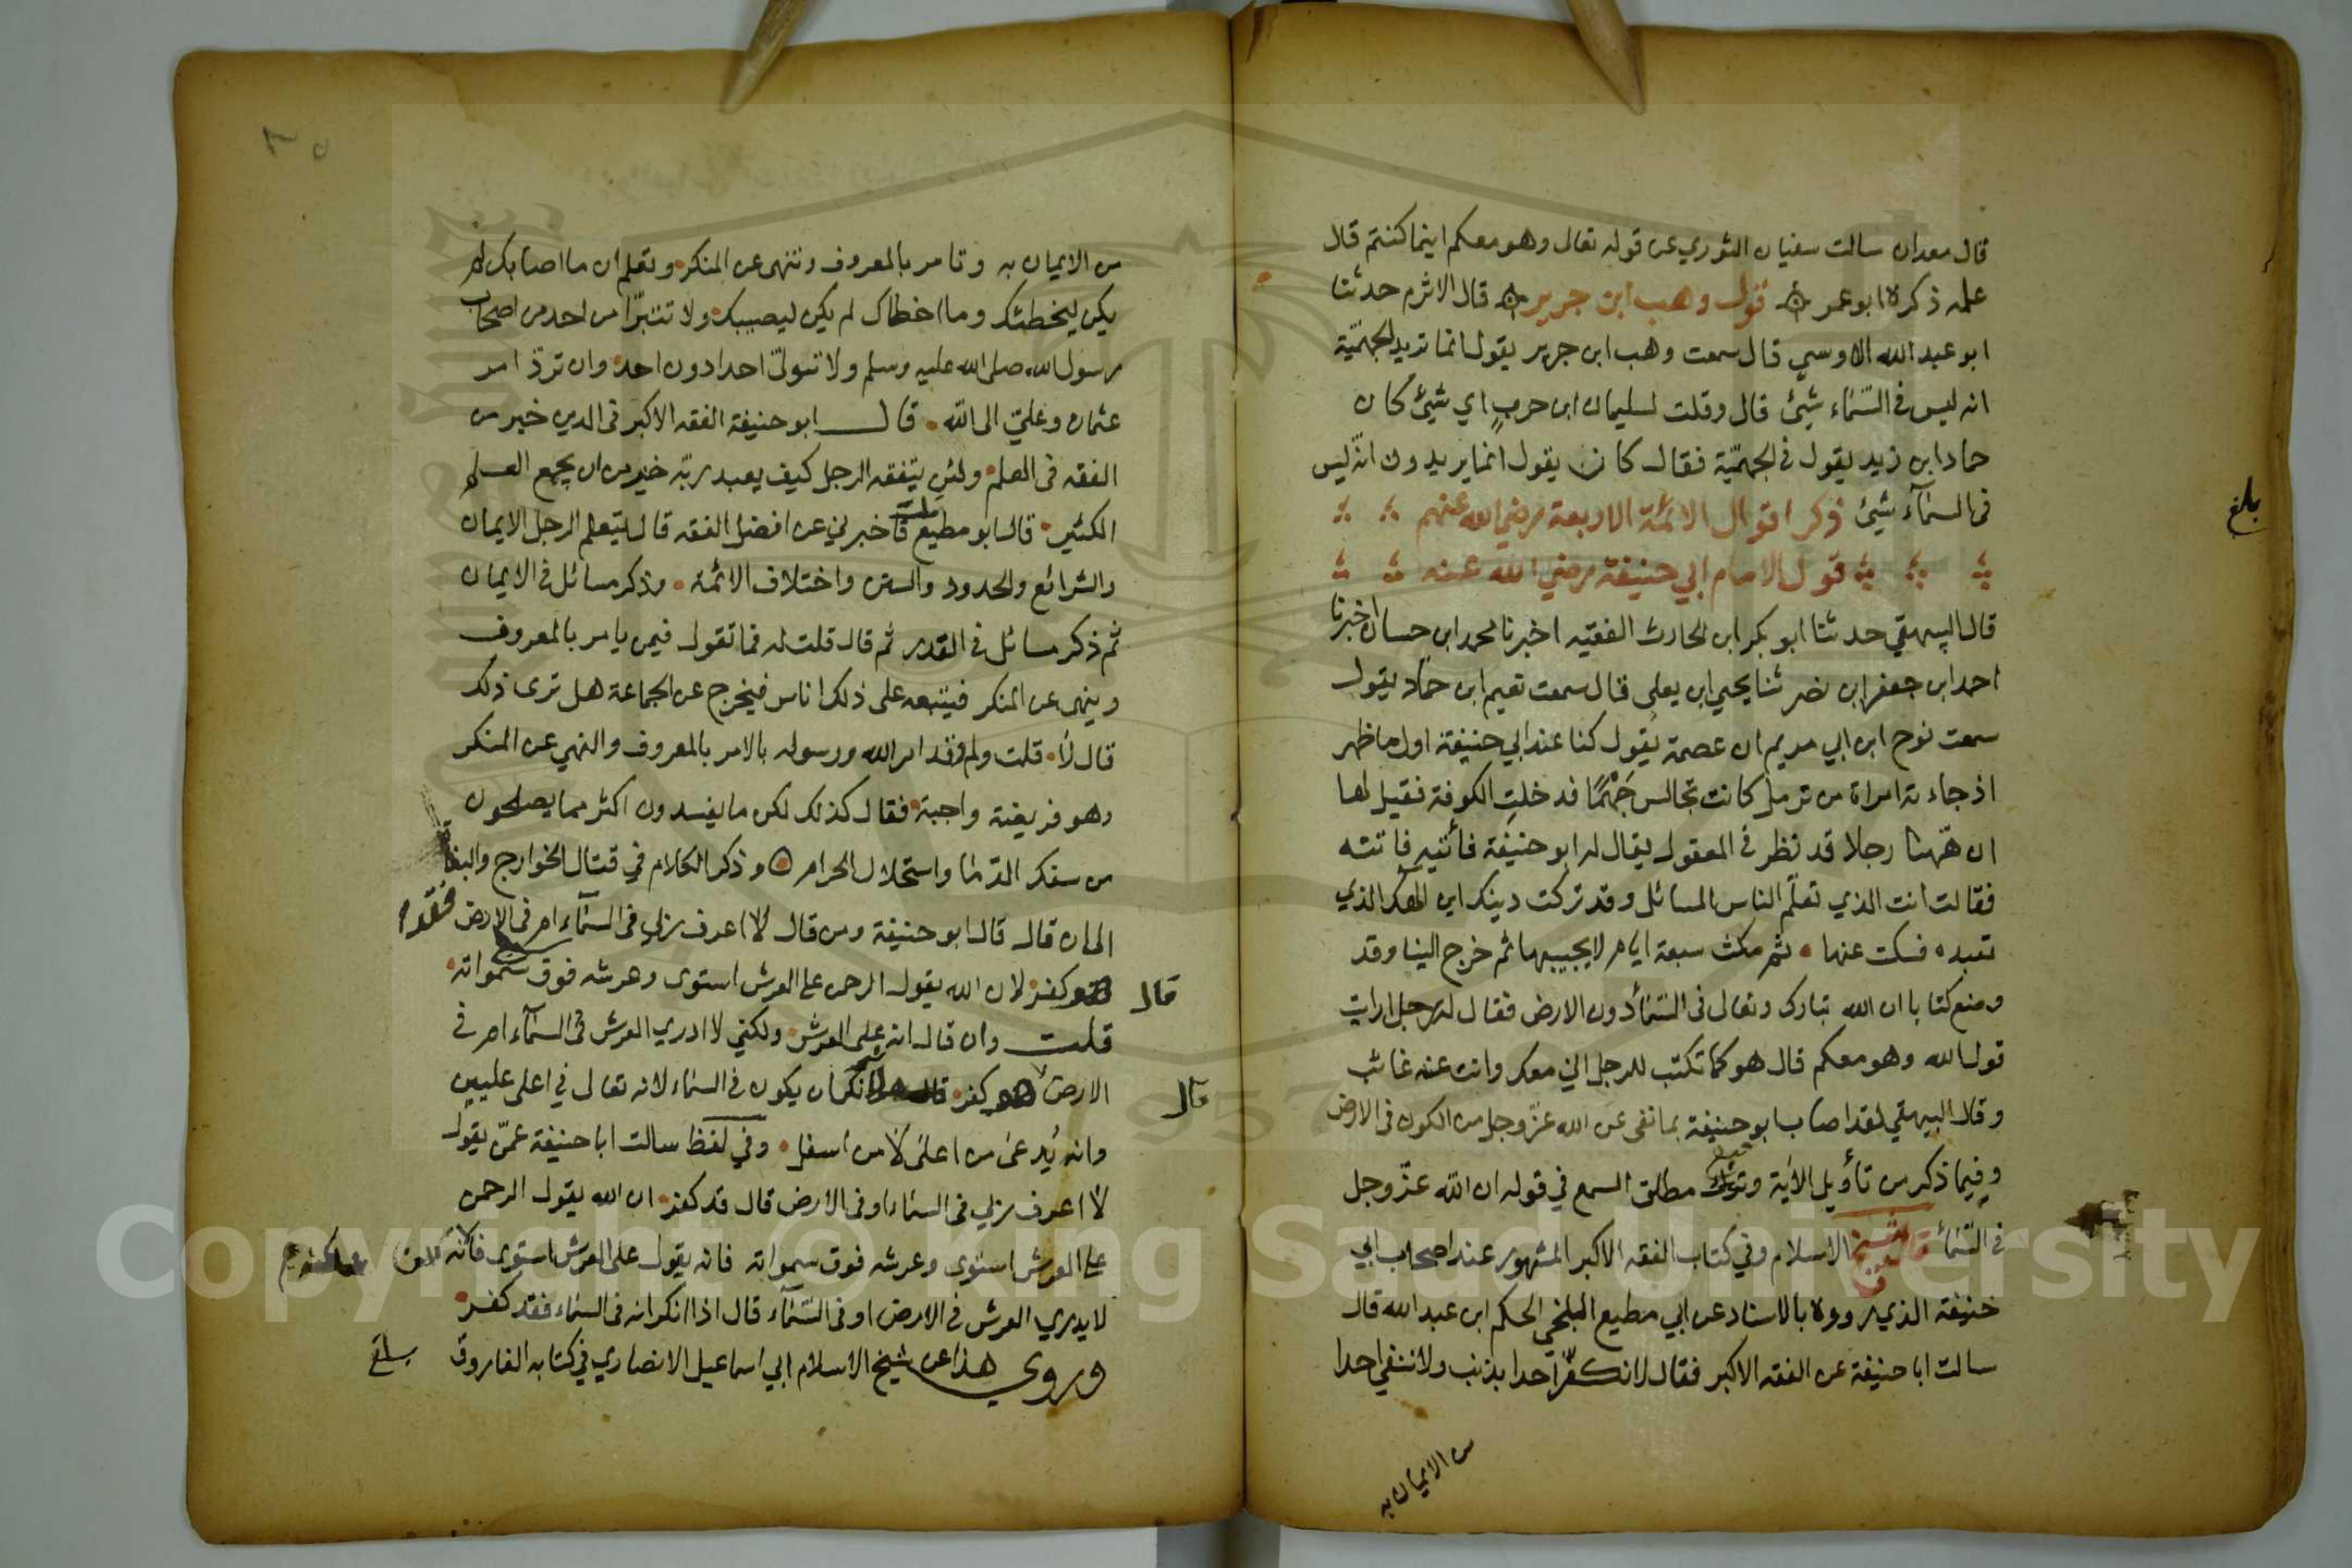 قال معدان سالت سفيان الثوري عن قوله تعالى وهو معكم اينما كنتم قال
علمه ذكره ابو عمر قول وهب ابن جرير قال الاثرم حدثنا
ابو عبد الله الاوسي قال سمعت وهب ابن جرير يقول انما تريد الجهمّية
انه ليس فى السّمٰاء شيئ قال وقلت لسليمان ابن حربٍ اي شيئ كان
حماد ابن زيد يقول فى الجهمّية فقال كان يقول انما يريدون انّه ليس
فى السمآء شيئ ذكر اقوال الائمة الاربعة رضي الله عنهم
قول الامام ابي حنيفة رضي الله عنه
قال البيهقي حدثنا ابو بكر ابن الحارث الفقيه اخبرنا محمد ابن حسان اخبرنا
احمد ابن جعفر ابن نضر ثنا يحيي ابن يعلى قال سمعت نعيم ابن حمّاد يقول
سمعت نوح ابن ابي مريم ان عصمة يقول كنا عند ابي حنيفة اول ما ظهر
اذ جاءته امراة من ترمذ كانت تجالس جَهْمًا فدخلتِ الكوفة فقيل لها
ان هٰهنا رجلا قد نظر فى المعقول يقال له ابو حنيفة فأتيه فاتته
فقالت انت الذي تعلّم الناس المسائل وقد تركت دينك اين الٰهك الذي
تعبده فسكت عنها ثم مكث سبعة ايام لا يجيبها ثم خرج الينا وقد
وضع كتابا ان الله تبارك وتعالى فى السّمٰاء دون الارض فقال له رجل ارايت
قول الله وهو معكم قال هو كما تكتب للرجل اني معك وانت عنه غائب
وقال البيهقي لقد اصاب ابو حنيفة بما نفى عن الله عزّ وجل من الكون فى الارض
وفيما ذكر من تأويل الاٰية مطلق السمع في قوله ان الله عزّ وجل
فى السّمٰاء قال شيخ الاسلام وفي كتاب الفقه الاكبر المشهور عند اصحاب ابي
حنيفة الذي رووه بالاسناد عن ابي مطيع البلخي الحكم ابن عبد الله قال
سالت ابا حنيفة عن الفقه الاكبر فقال لا نكفّر احدا بذنب ولا ننفي احدا
من الايمان به
بلغ
من الايمان به وتامر بالمعروف وتنهى عن المنكر وتعلم ان ما اصابك لم
يكن ليخطئك وما اخطاك لم يكن ليصيبك ولا تتبرّا من احد من اصحاب
رسول الله صلى الله عليه وسلم ولا تتولّى احدا دون احد وان تردّ امر
عثمان وعليّ الى الله قال ابو حنيفة الفقه الاكبر فى الدين خير من
الفقه فى العلم ولئن يتفقه الرجل كيف يعبد ربّه خير من ان يجمع العلم
الكثير قال ابو مطيع قلت فاخبرني عن افضل الفقه قال يتعلم الرجل الايمان
والشرائع والحدود والسنن واختلاف الائمة وذكر مسائل فى الايمان
ثم ذكر مسائل فى القدر ثم قال قلت له فما تقول فيمن يامر بالمعروف
وينهى عن المنكر فيتبعه على ذلك اناس فيخرج عن الجماعة هل ترى ذلك
قال لا قلت ولم وقد امر الله ورسوله بالامر بالمعروف والنهي عن المنكر
وهو فريضة واجبة فقال كذلك لكن ما يفسدون اكثر مما يصلحون
من سفك الدّما واستحلال الحرام وذكر الكلام في قتال الخوارج والبغاة
الى ان قال قال ابو حنيفة ومن قال لا اعرف ربي فى السمآء ام فى الارض فقد
كفر لان الله يقول الرحمن على العرش استوى وعرشه فوق سمواته
قال
قلت وان قال انه على العرش ولكني لا ادري العرش فى السمآء ام فى
الارض كفر لانه انكر ان يكون فى السماء لانه تعالى في اعلى عليين
قال
وانه يُدعى من اعلىٰ لا من اسفل وفي لفظ سالت ابا حنيفة عمّن يقول
لا اعرف ربي فى السماء او فى الارض قال قد كفر ان الله يقول الرحمن
على العرش استوى وعرشه فوق سمواته فانه يقول على العرش استوى
لا يدري العرش فى الارض او فى السّمآء قال اذا انكر انه فى السماء فقد كفر
وروي هذا عن شيخ الاسلام ابي اسماعيل الانصاري في كتابه الفاروق